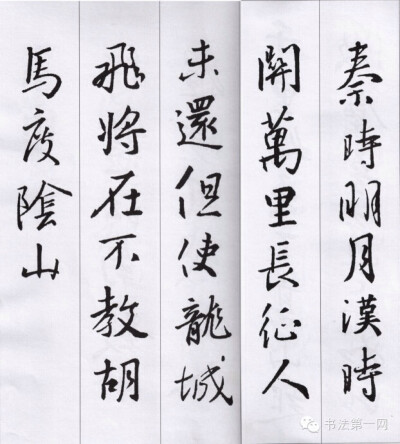 秦時明月漢時
關萬里長征人
未還但使龍城
飛將在不教胡
馬度陰山
书法第一网